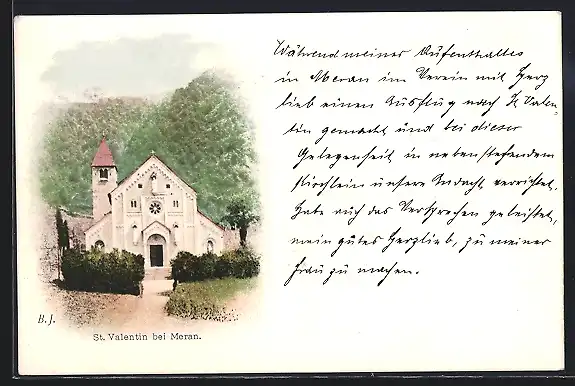 Während meines Aufenthaltes
in Meran im Verein mit Herz
lieb einen Ausflug nach St. Valen-
tin gemacht und bei dieser
Gelegenheit in nebenstehendem
Kirchlein unsere Andacht verrichtet.
Habe auch das Versprechen geleistet,
mein gutes Herzlieb, zu meiner
Frau zu machen.
B. J.
St. Valentin bei Meran.